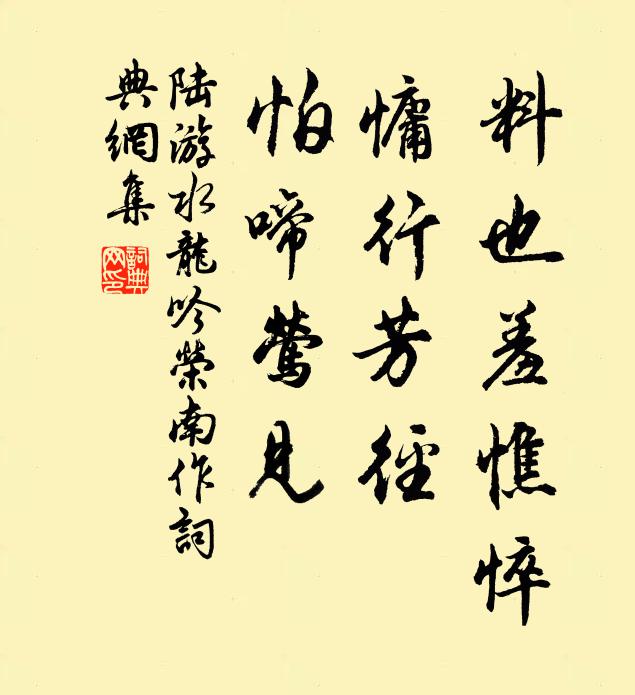 料也羞憔悴
慵行芳徑
怕啼鶯見
陸游水龍吟榮南作詞
典網集
詞典
网印